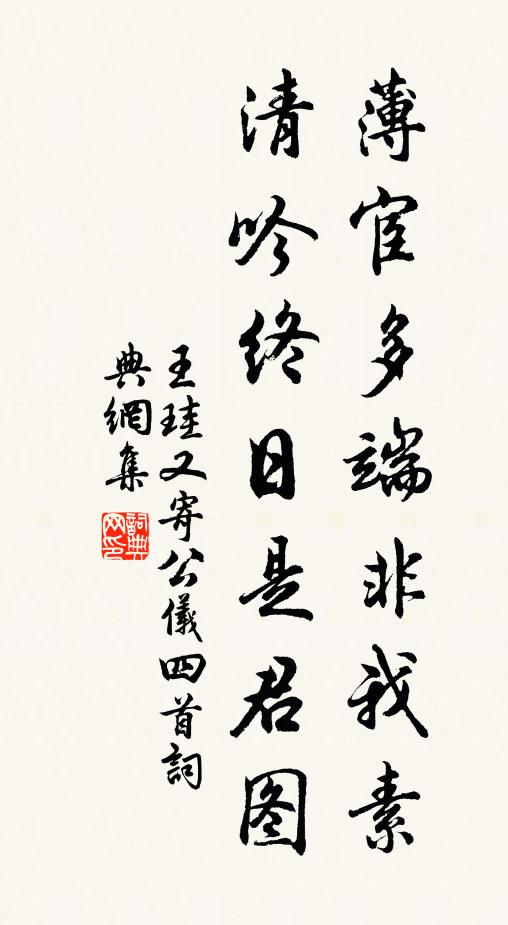 薄宦多端非我素
清吟终日是君图
王珪又寄公儀四首詞
典網集
詞典
网印